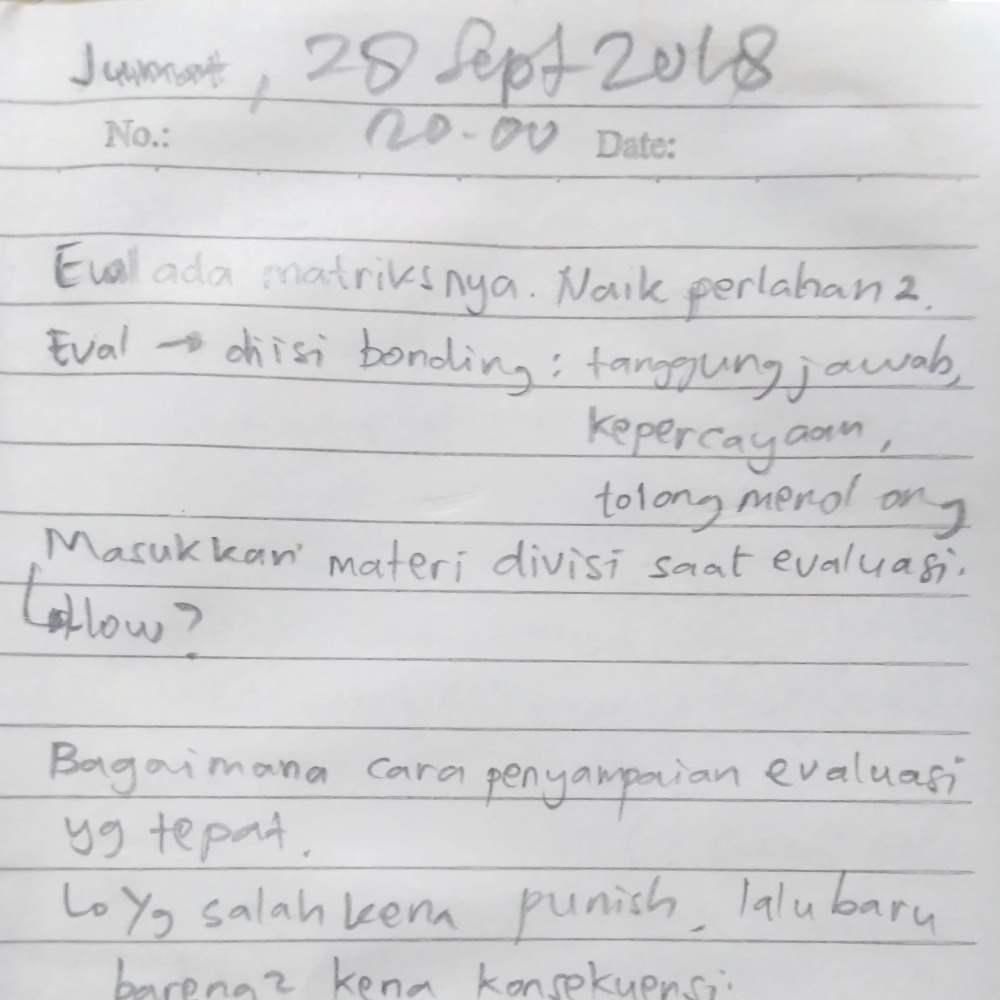 Jummat, 28 Sept 2018
No.: 20-00 Date:
Eval ada matriksnya. Naik perlahan2.
Eval → diisi bonding: tanggung jawab,
kepercayaan,
tolong menolong
Masukkan materi divisi saat evaluasi.
↳ How?
Bagaimana cara penyampaian evaluasi
yg tepat.
↳ Yg salah kena punish, lalu baru
bareng2 kena konsekuensi.